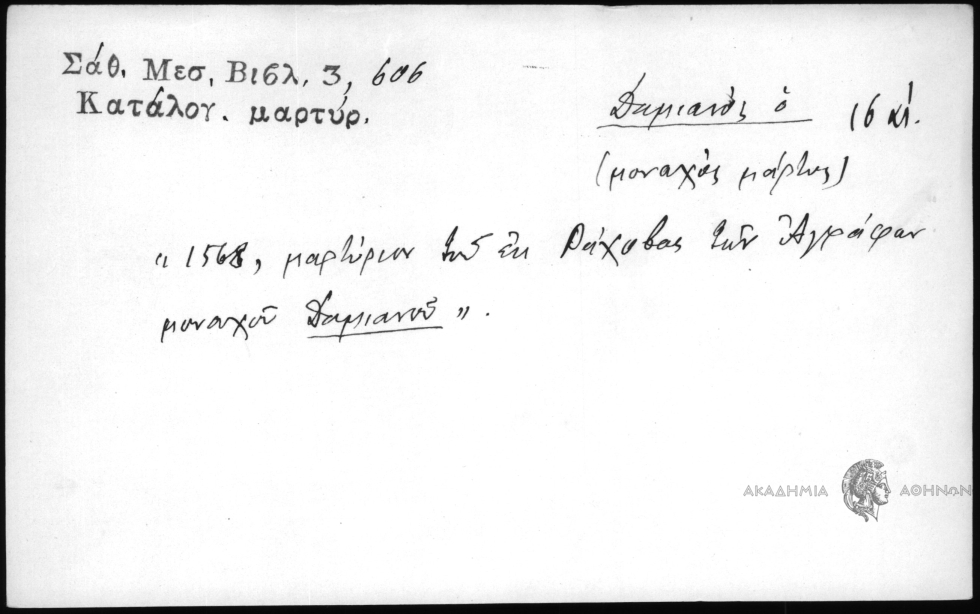 Σάθ. Μεσ. Βιβλ. 3, 606
Κατάλογ. μαρτύρ.
Δαμιανὸς ὁ 16 αἰ.
(μοναχὸς μάρτυς)
« 1568, μαρτύριον τοῦ ἐκ Ράχοβας τῶν Ἀγράφων
μοναχοῦ Δαμιανοῦ ».
ΑΚΑΔΗΜΙΑ ΑΘΗΝΩΝ